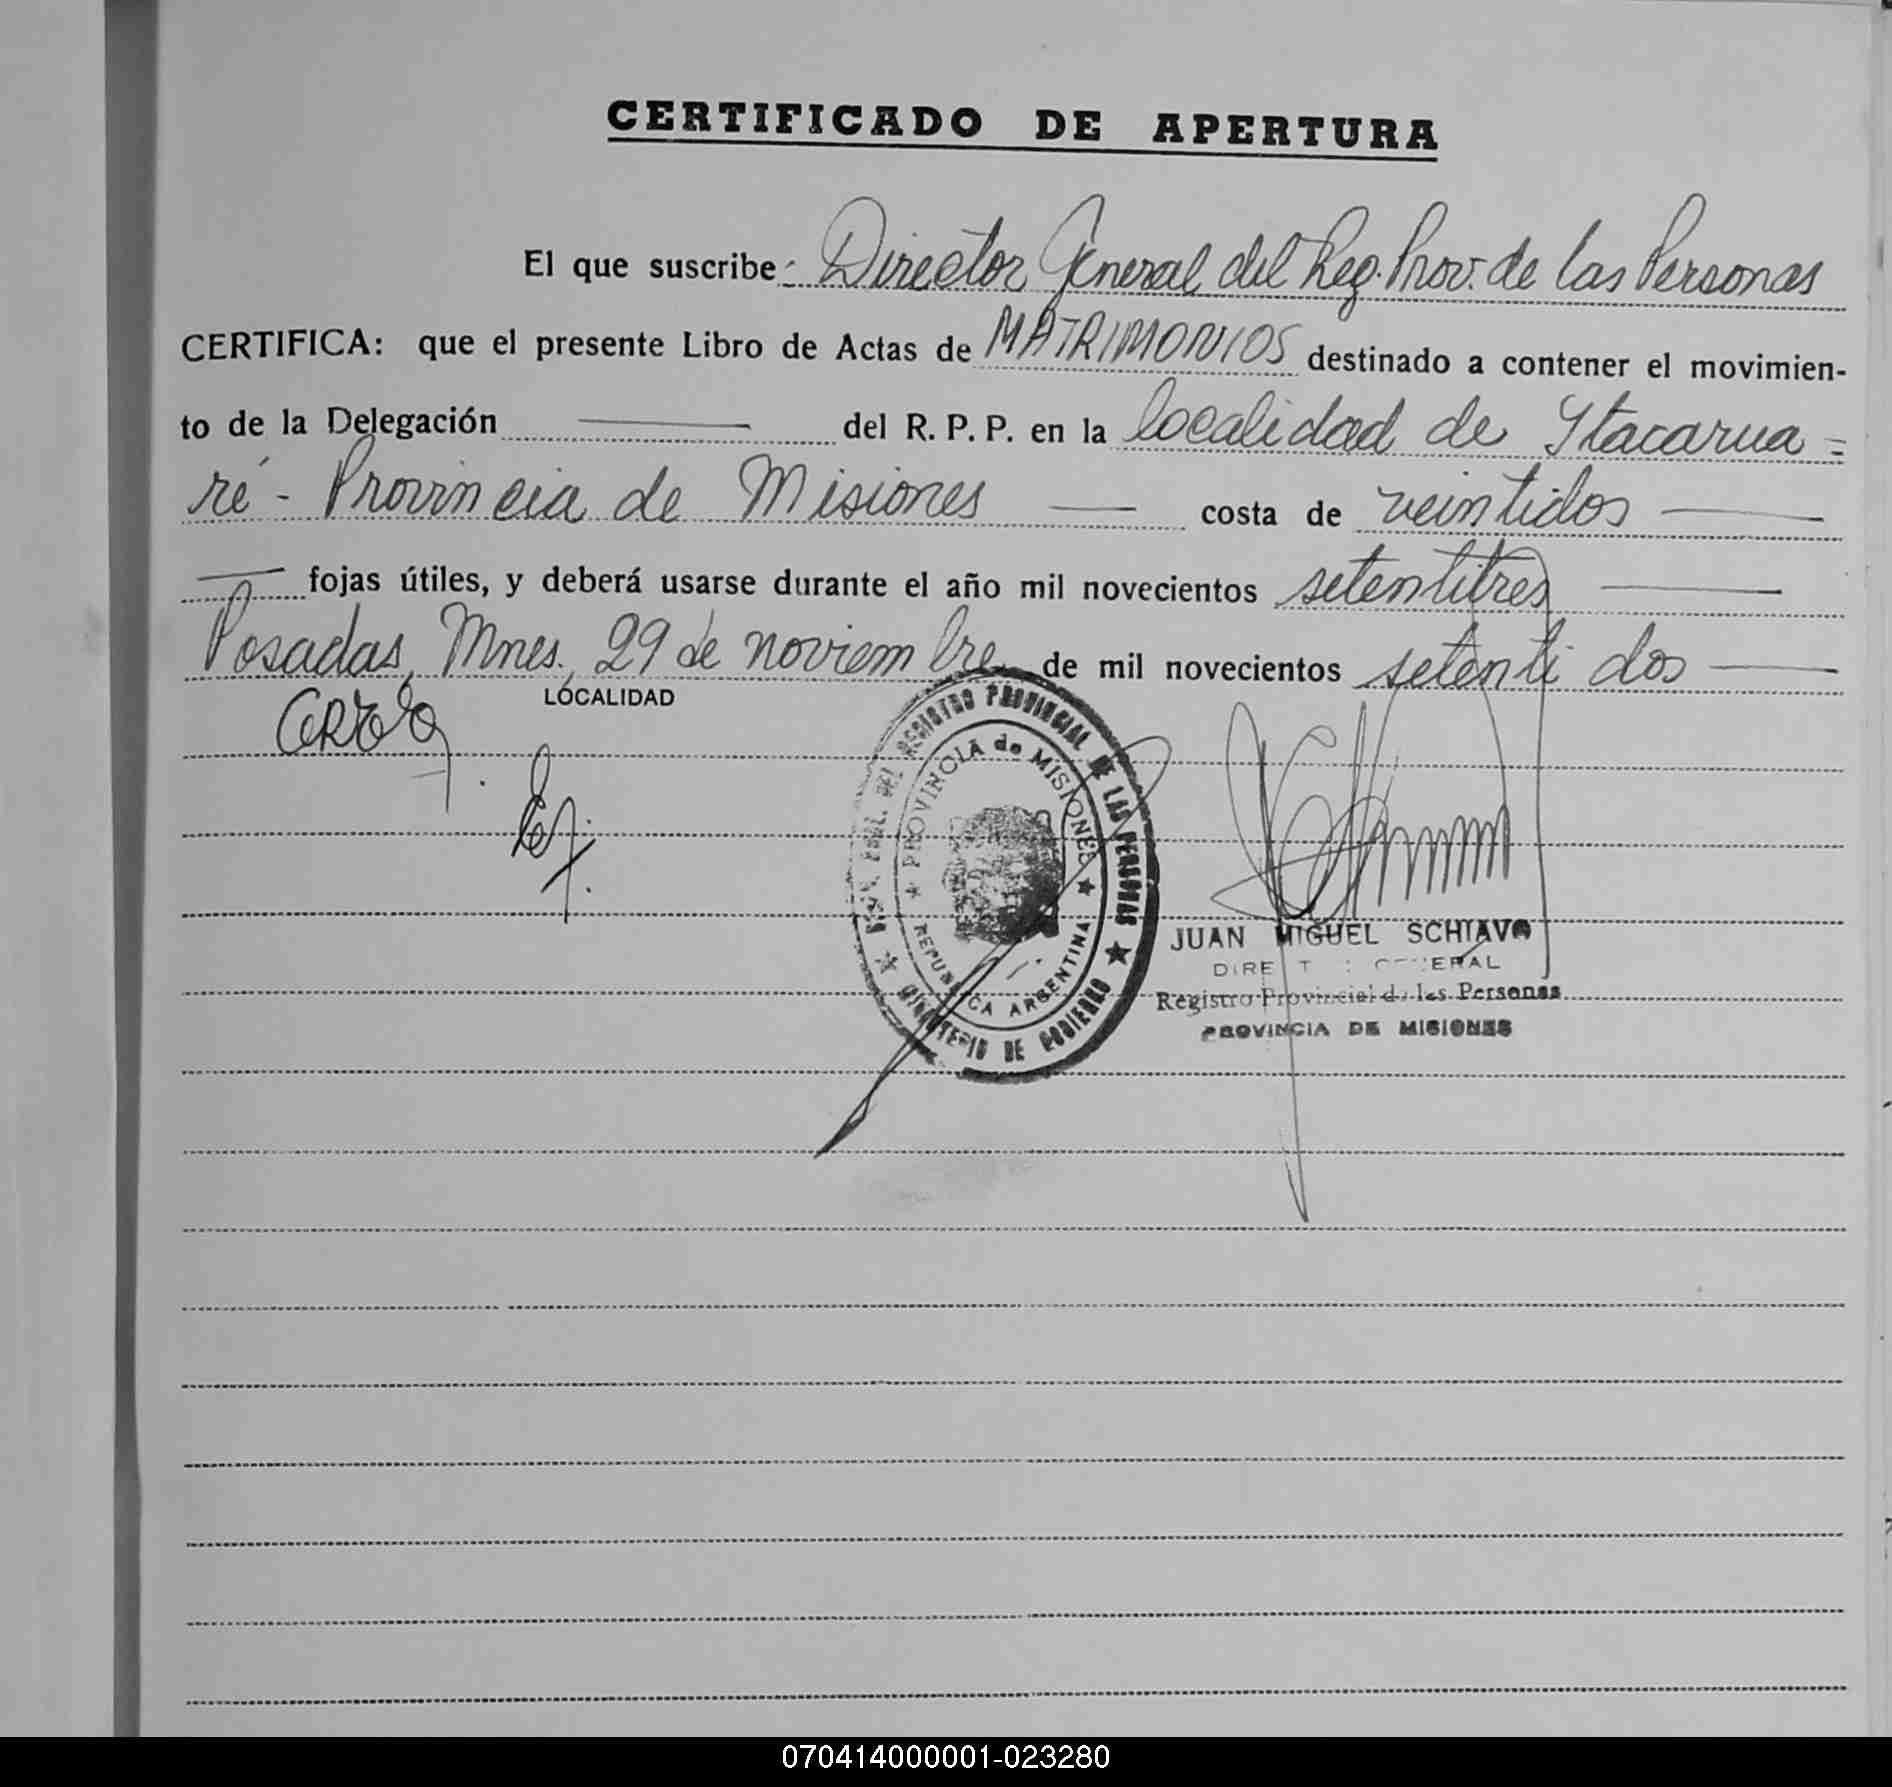 CERTIFICADO DE APERTURA
El que suscribe: Director General del Reg. Prov. de las Personas
CERTIFICA: que el presente Libro de Actas de MATRIMONIOS destinado a contener el movimien-
to de la Delegación — del R. P. P. en la localidad de Ytacarua=
ré - Provincia de Misiones — costa de veintidos —
— fojas útiles, y deberá usarse durante el año mil novecientos setentitres —
Posadas, Mnes. 29 de noviembre de mil novecientos setenti dos —
LOCALIDAD
REGISTRO PROVINCIAL DE LAS PERSONAS ★ MINISTERIO DE GOBIERNO ★
PROVINCIA de MISIONES ★ REPUBLICA ARGENTINA ★
JUAN MIGUEL SCHIAVO
DIRECTOR GENERAL
Registro Provincial de las Personas
PROVINCIA DE MISIONES
070414000001-023280